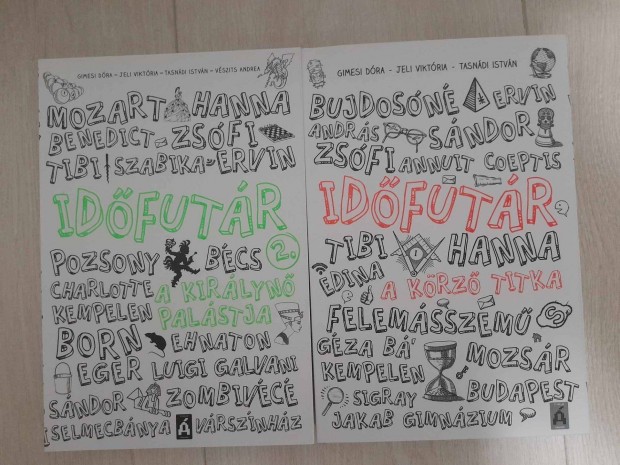 GIMESI DÓRA - JELI VIKTÓRIA - TASNÁDI ISTVÁN - VÉSZITS ANDREA
MOZART HANNA
BENEDICT ZSÓFI
TIBI SZABIKA ERVIN
IDŐFUTÁR
2.
POZSONY BÉCS
CHARLOTTE A KIRÁLYNŐ
KEMPELEN PALÁSTJA
BORN EHNATON
EGER LUIGI GALVANI
SÁNDOR ZOMBIVÉCÉ
SELMECBÁNYA Á VÁRSZÍNHÁZ
GIMESI DÓRA - JELI VIKTÓRIA - TASNÁDI ISTVÁN
BUJDOSÓNÉ ERVIN
ANDRÁS SÁNDOR
ZSÓFI ANNUIT COEPTIS
IDŐFUTÁR
TIBI HANNA
EDINA A KÖRZŐ TITKA
FELEMÁSSZEMŰ
GÉZA BÁ' MOZSÁR
KEMPELEN BUDAPEST
SIGRAY
JAKAB GIMNÁZIUM Á